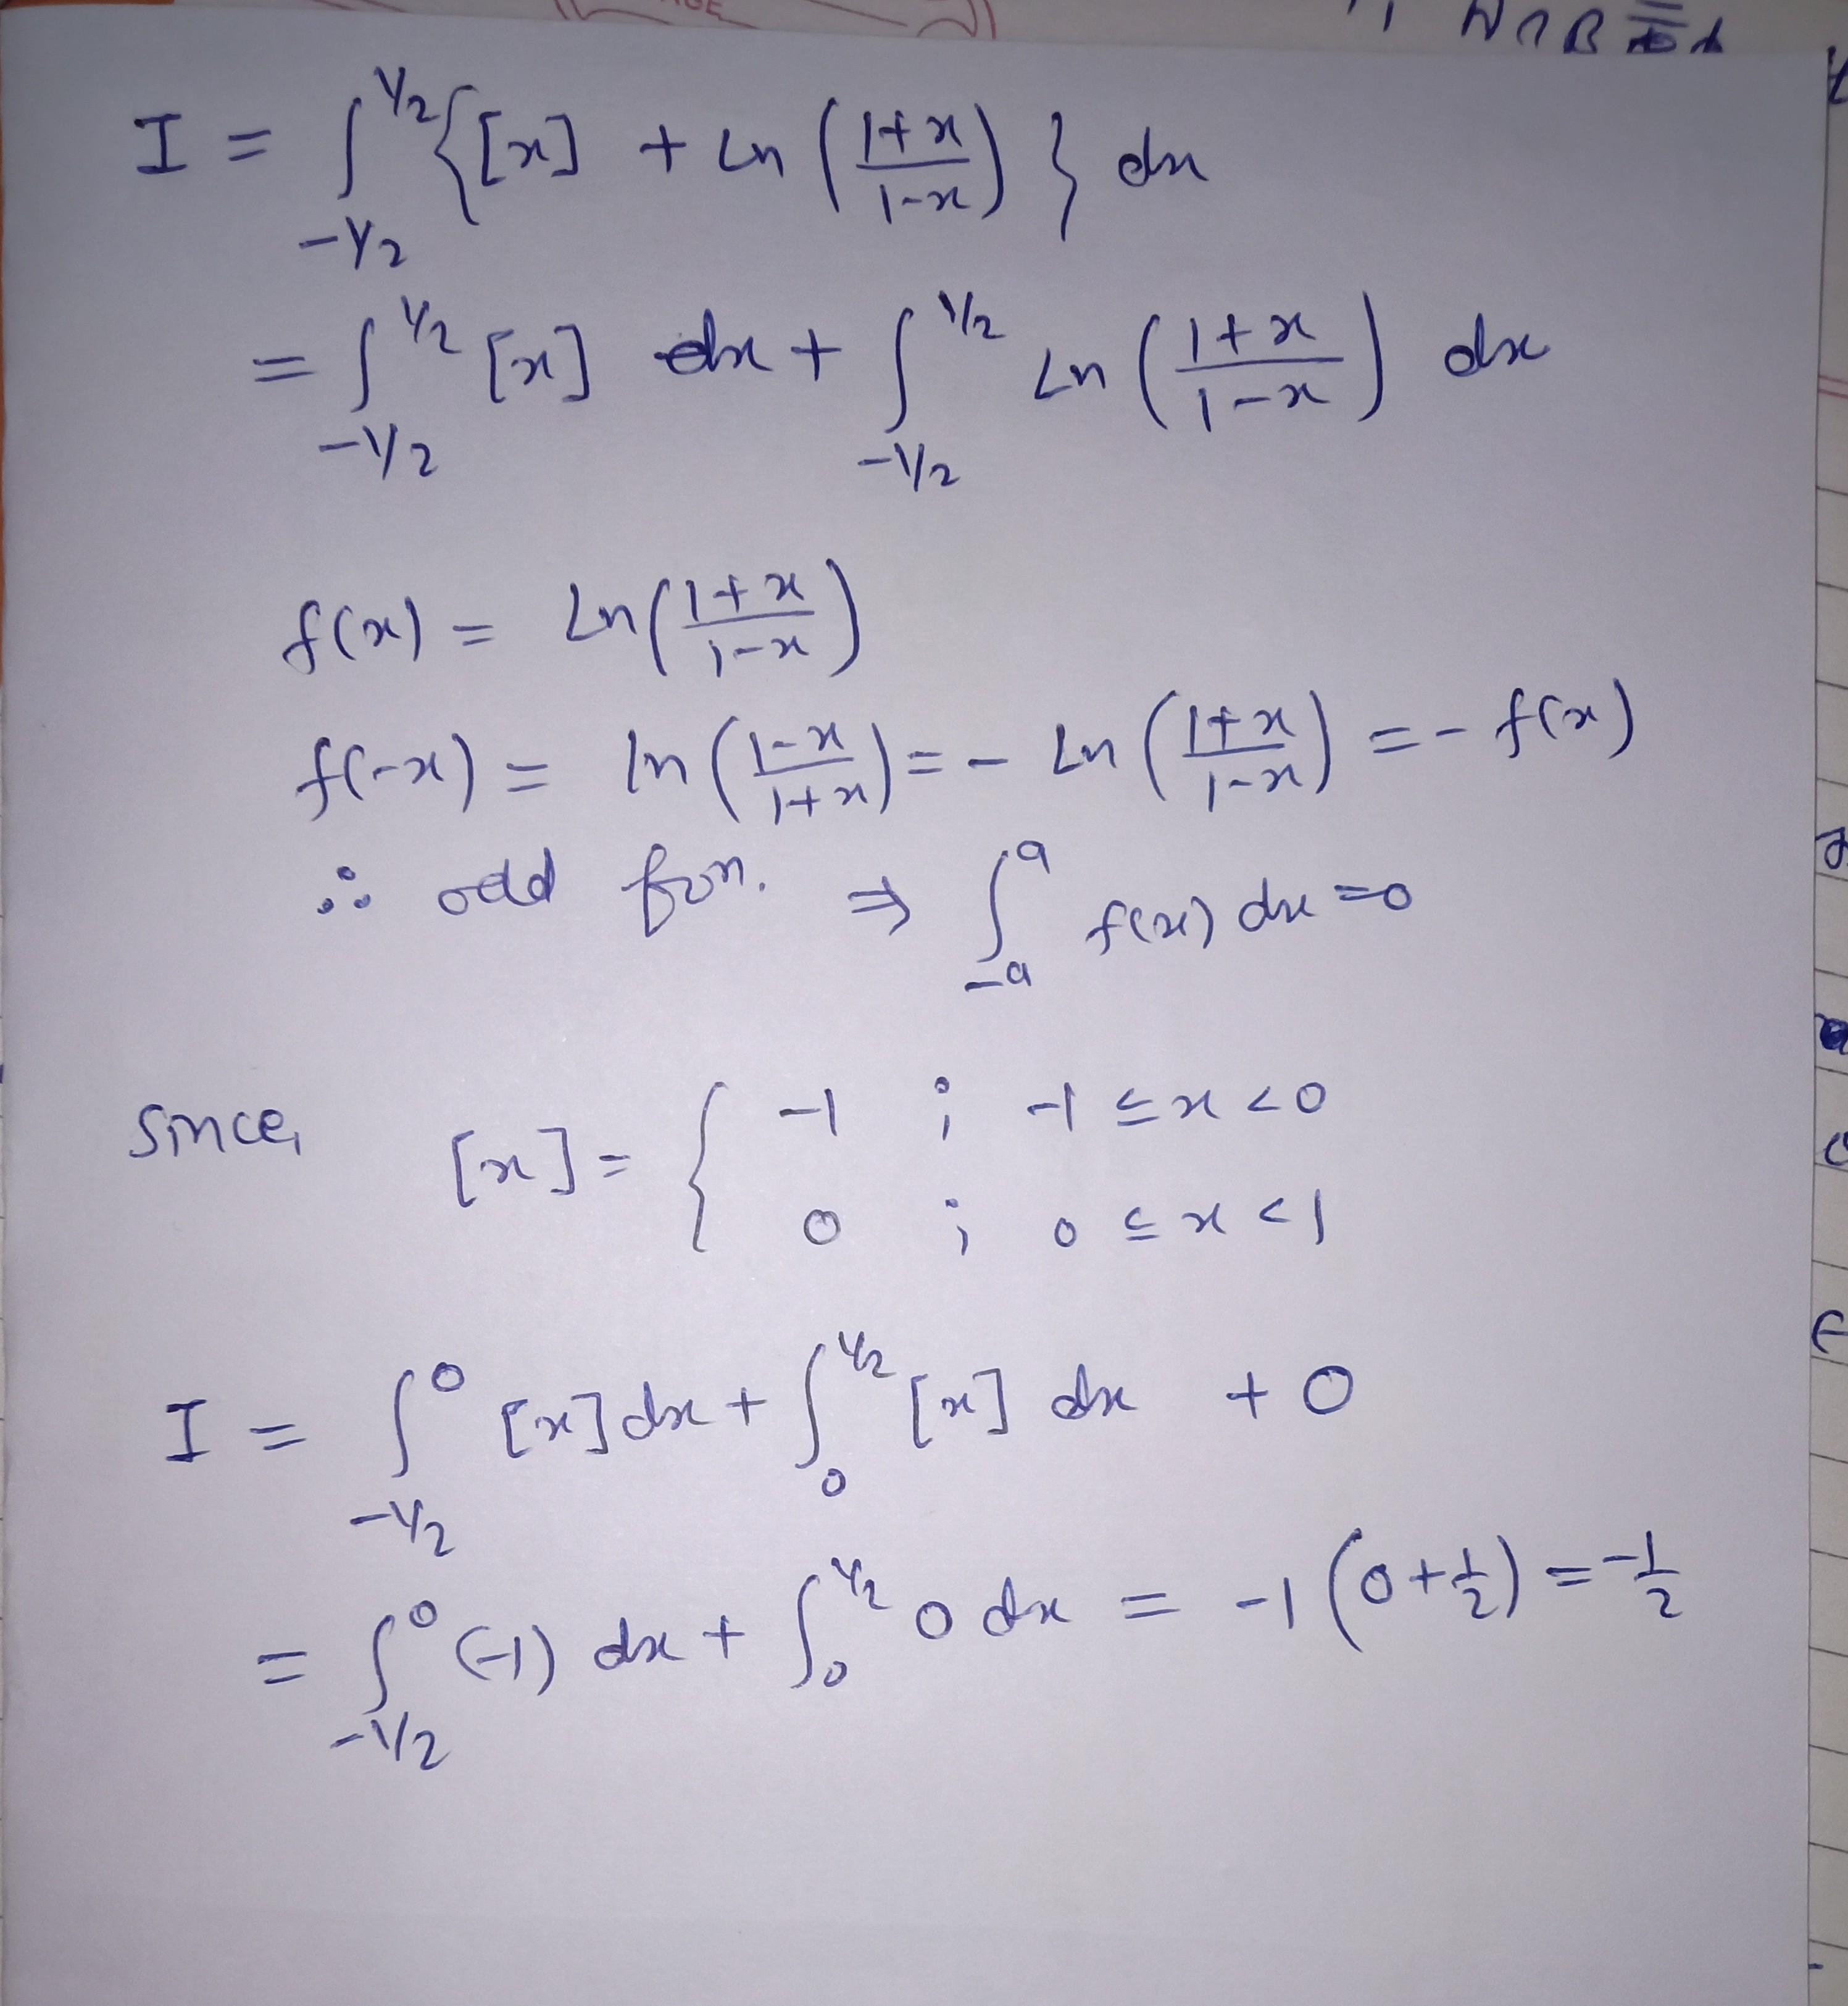 I = ∫_{-1/2}^{1/2} { [x] + ln ( (1+x)/(1-x) ) } dx
= ∫_{-1/2}^{1/2} [x] dx + ∫_{-1/2}^{1/2} ln ( (1+x)/(1-x) ) dx
f(x) = ln ( (1+x)/(1-x) )
f(-x) = ln ( (1-x)/(1+x) ) = - ln ( (1+x)/(1-x) ) = - f(x)
∴ odd fun. ⇒ ∫_{-a}^{a} f(x) dx = 0
Since, [x] = { -1 ; -1 ≤ x < 0
0 ; 0 ≤ x < 1
I = ∫_{-1/2}^{0} [x] dx + ∫_{0}^{1/2} [x] dx + 0
= ∫_{-1/2}^{0} (-1) dx + ∫_{0}^{1/2} 0 dx = -1 (0 + 1/2) = -1/2